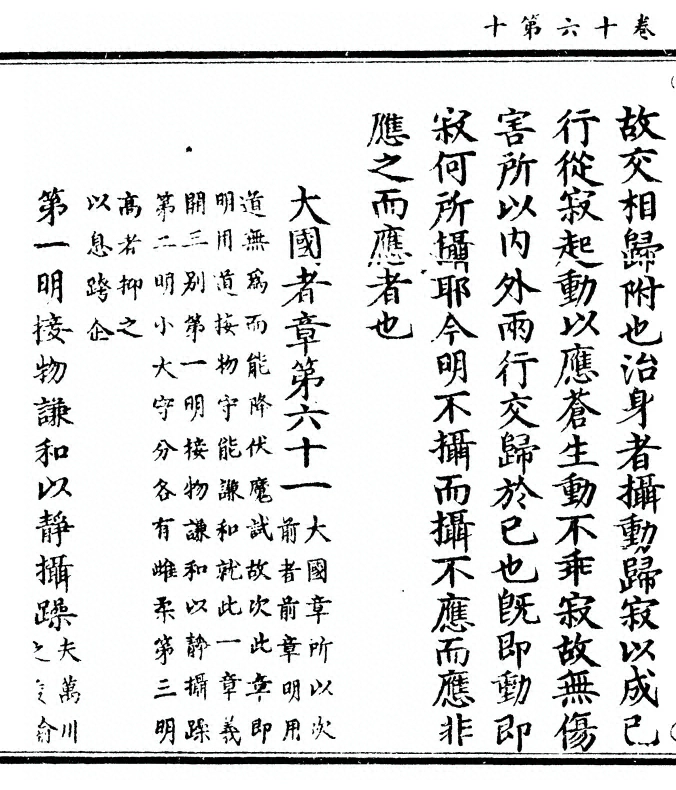 卷十六第十
故交相歸附也治身者攝動歸寂以成已
行從寂起動以應蒼生動不乖寂故無傷
害所以内外兩行交歸於已也旣即動即
寂何所攝耶今明不攝而攝不應而應非
應之而應者也
大國者章第六十一大國章所以次
前者前章明用
道無爲而能降伏魔試故次此章即
明用道接物守能謙和就此一章義
開三别第一明接物謙和以静攝躁
第二明小大守分各有雌柔第三明
高者抑之
以息跨企
第一明接物謙和以靜攝躁夫萬川
之